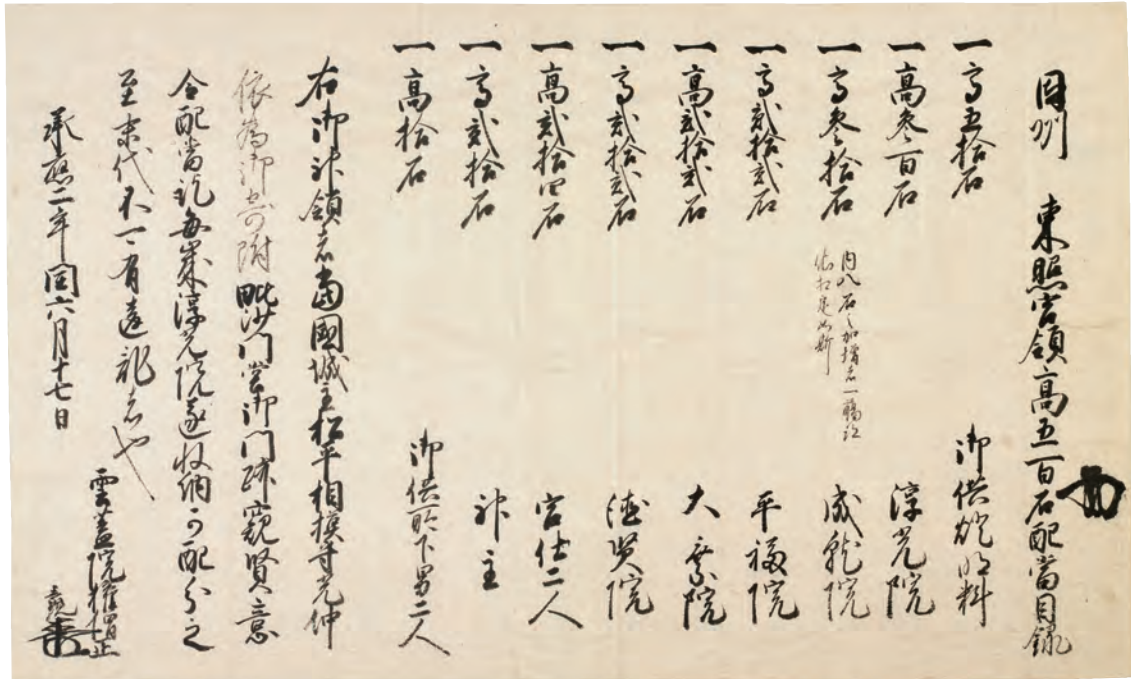 因州 東照宮領高五百石配當目録
一 高五拾石 御供燈明料
一 高參百石 淳光院
一 高參拾石 内八石之加増者一臈江 成就院
一 高貳拾貳石 平福院
一 高貳拾貳石 大乘院
一 高貳拾貳石 徳賢院
一 高貳拾四石 宮仕二人
一 高貳拾石 神主
一 高拾石 御供所下男二人
右御神領者當國城主松平相模守光仲
依爲御寄附毘沙門堂御門跡窺賢意
令配當訖毎歳淳光院遂收納可配分之
至末代不可有違亂者也
承應二年閏六月十七日
雲蓋院權僧正